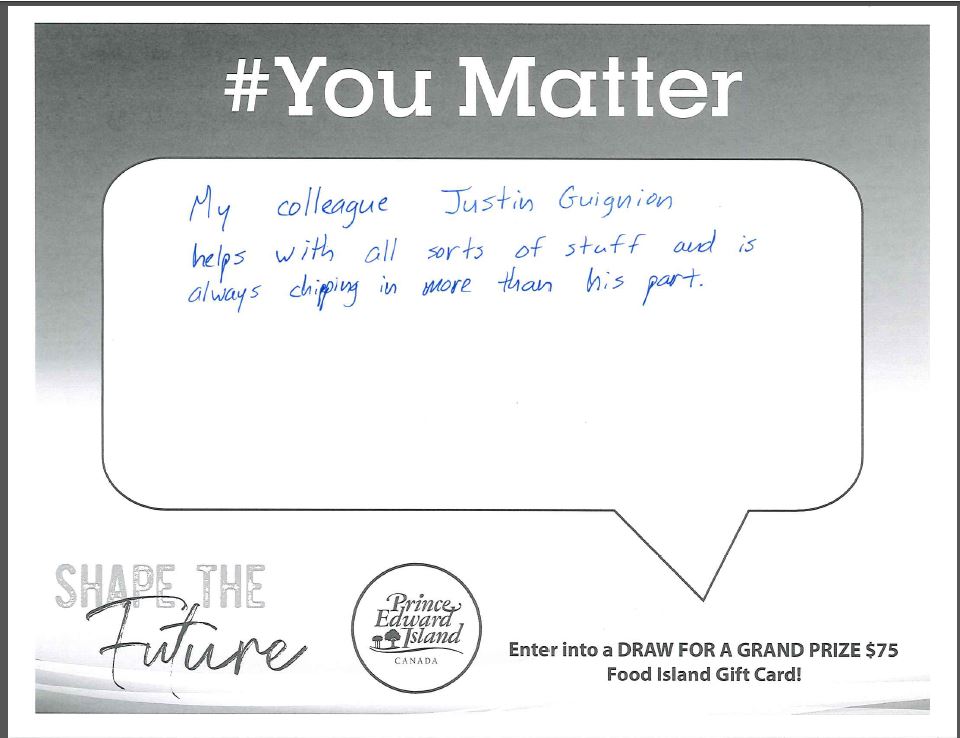 #You Matter
My colleague Justin Guignion
helps with all sorts of stuff and is
always chipping in more than his part.
SHAPE THE
Future
Prince
Edward
Island
CANADA
Enter into a DRAW FOR A GRAND PRIZE $75
Food Island Gift Card!